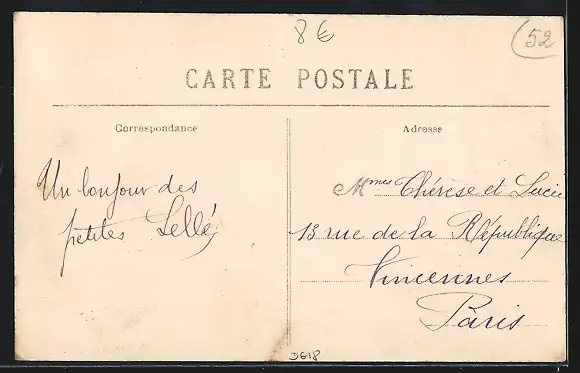 8€
52
CARTE POSTALE
Correspondance
Adresse
Un bonjour des
petites Lellé
Mmes Thérèse et Lucie
13 rue de la République
Vincennes
Paris
D618